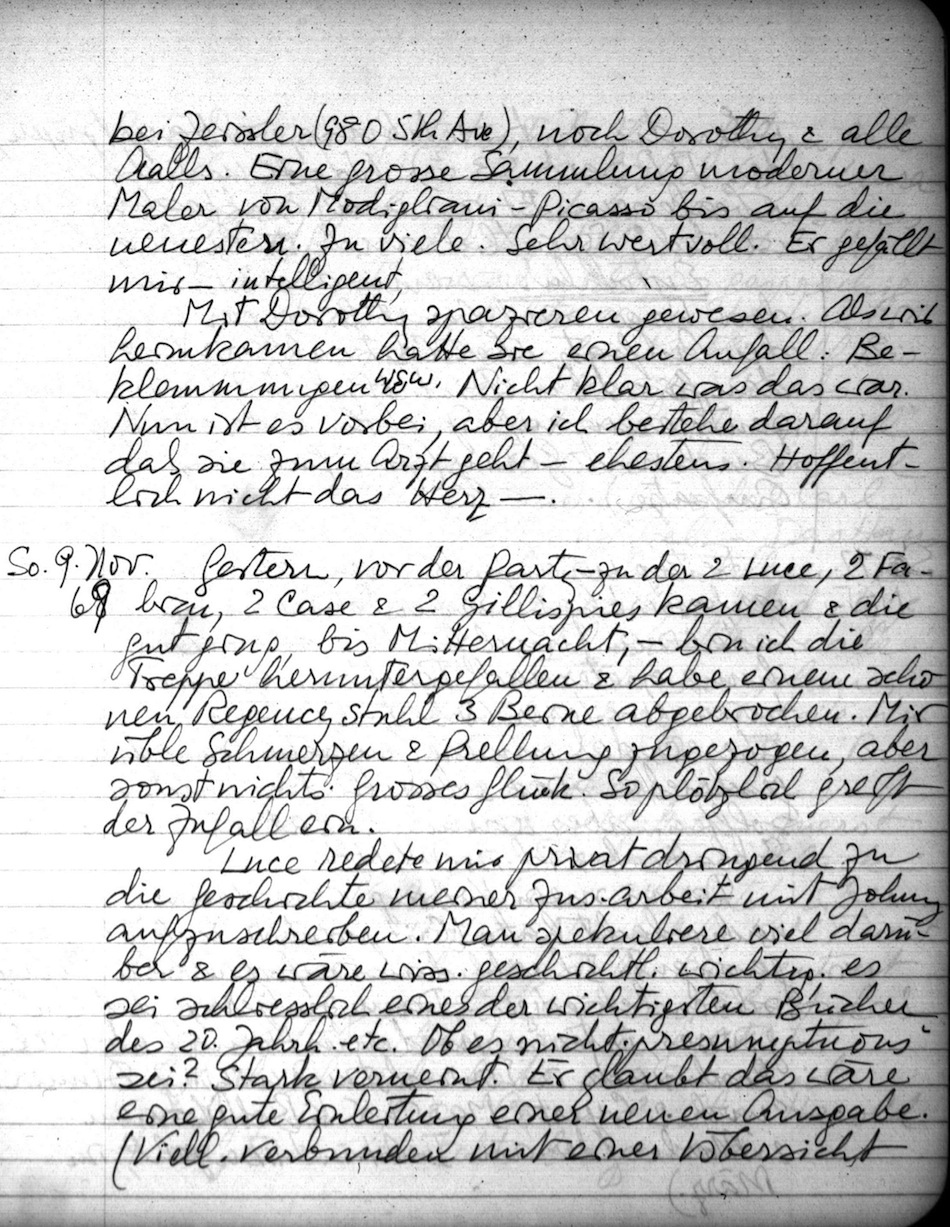 bei Zeissler (980 5th Ave), noch Dorothy & alle
Aalls. Eine grosse Sammlung moderner
Maler von Modigliani - Picasso bis auf die
neuesten. Zu viele. Sehr wertvoll. Er gefällt
mir - intelligent.
Mit Dorothy spazieren gewesen. Als wir
heimkamen hatte sie einen Anfall: Be-
klemmungen usw. Nicht klar was das war.
Nun ist es vorbei, aber ich bestehe darauf
daß sie zum Arzt geht - ehestens. Hoffent-
lich nicht das Herz —.
So. 9. Nov. Gestern, vor der Party - zu der 2 Luce, 2 Fa-
69 bian, 2 Case & 2 Gillispies kamen & die
gut ging, bis Mitternacht, - bin ich die
Treppe heruntergefallen & habe einem schö
nen Regency stuhl 3 Beine abgebrochen. Mir
üble Schmerzen & Prellung zugezogen, aber
sonst nichts. Grosses Glück. So plötzlich greift
der Zufall ein.
Luce redete mir privat dringend zu
die Geschichte meiner Zus.arbeit mit Johnny
aufzuschreiben. Man spekuliere viel darü-
ber & es wäre wiss. geschichtl. wichtig, es
sei schliesslich eines der wichtigsten Bücher
des 20. Jahrh. etc. Ob es nicht "presumptuous"
sei? Stark verneint. Er glaubt das wäre
eine gute Einleitung einer neuen Ausgabe.
(Viell. verbunden mit einer Übersicht